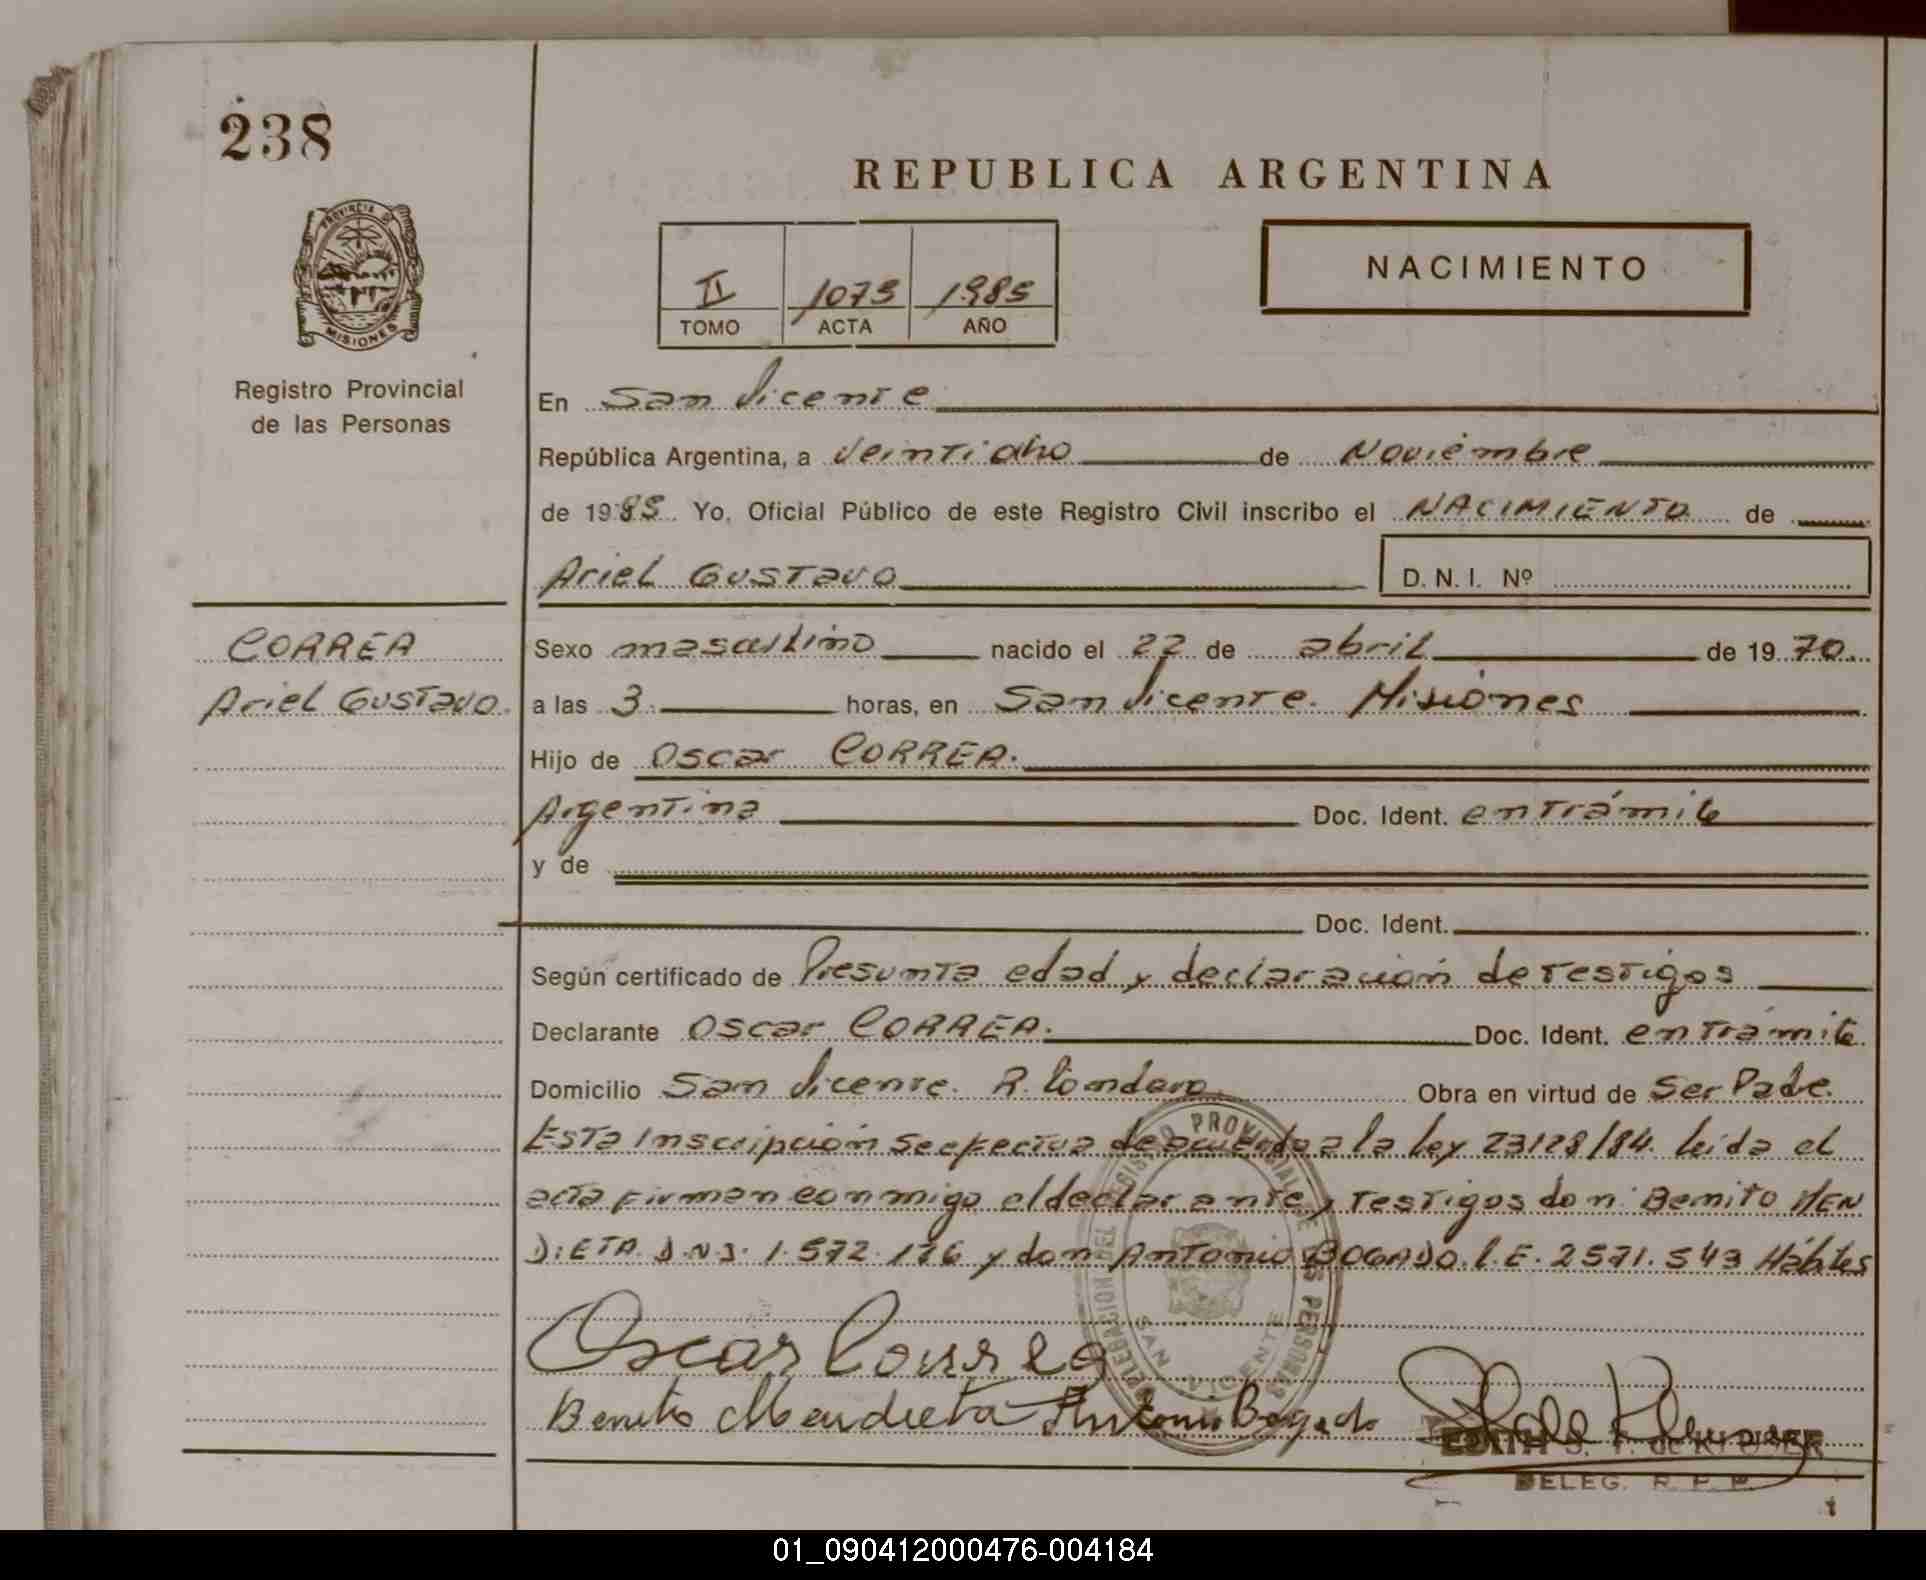 238
REPUBLICA ARGENTINA
PROVINCIA DE
MISIONES
Registro Provincial
de las Personas
II 1073 1985
TOMO ACTA AÑO
NACIMIENTO
En San Vicente
República Argentina, a veintiocho de Noviembre
de 1985 Yo, Oficial Público de este Registro Civil inscribo el NACIMIENTO de
Ariel GUSTavo D. N. I. Nº
CORREA
Ariel GUSTavo
Sexo masculino nacido el 22 de abril de 1970
a las 3 horas, en San Vicente. Misiones
Hijo de Oscar CORREA.
Argentina Doc. Ident. entrámite
y de
Doc. Ident.
Según certificado de Presunta edad y declaración de testigos
Declarante Oscar CORREA. Doc. Ident. entrámite
Domicilio San Vicente. Obra en virtud de Ser Padre.
Esta Inscripción se efectua de acuerdo a la ley 23128/84. leída el
acta firman conmigo el declarante y testigos don Benito MEN
DIETA D.N.I. 1.572.176 y don Antonio BOGADO. L.E. 2571.543 Hábiles
REGISTRO PROVINCIAL DE LAS PERSONAS
DELEGACION DEL
SAN VICENTE
Oscar Correa
Benito Mendieta Antonio Bogado
EDITH S.
DELEG. R. P. P.
01_090412000476-004184